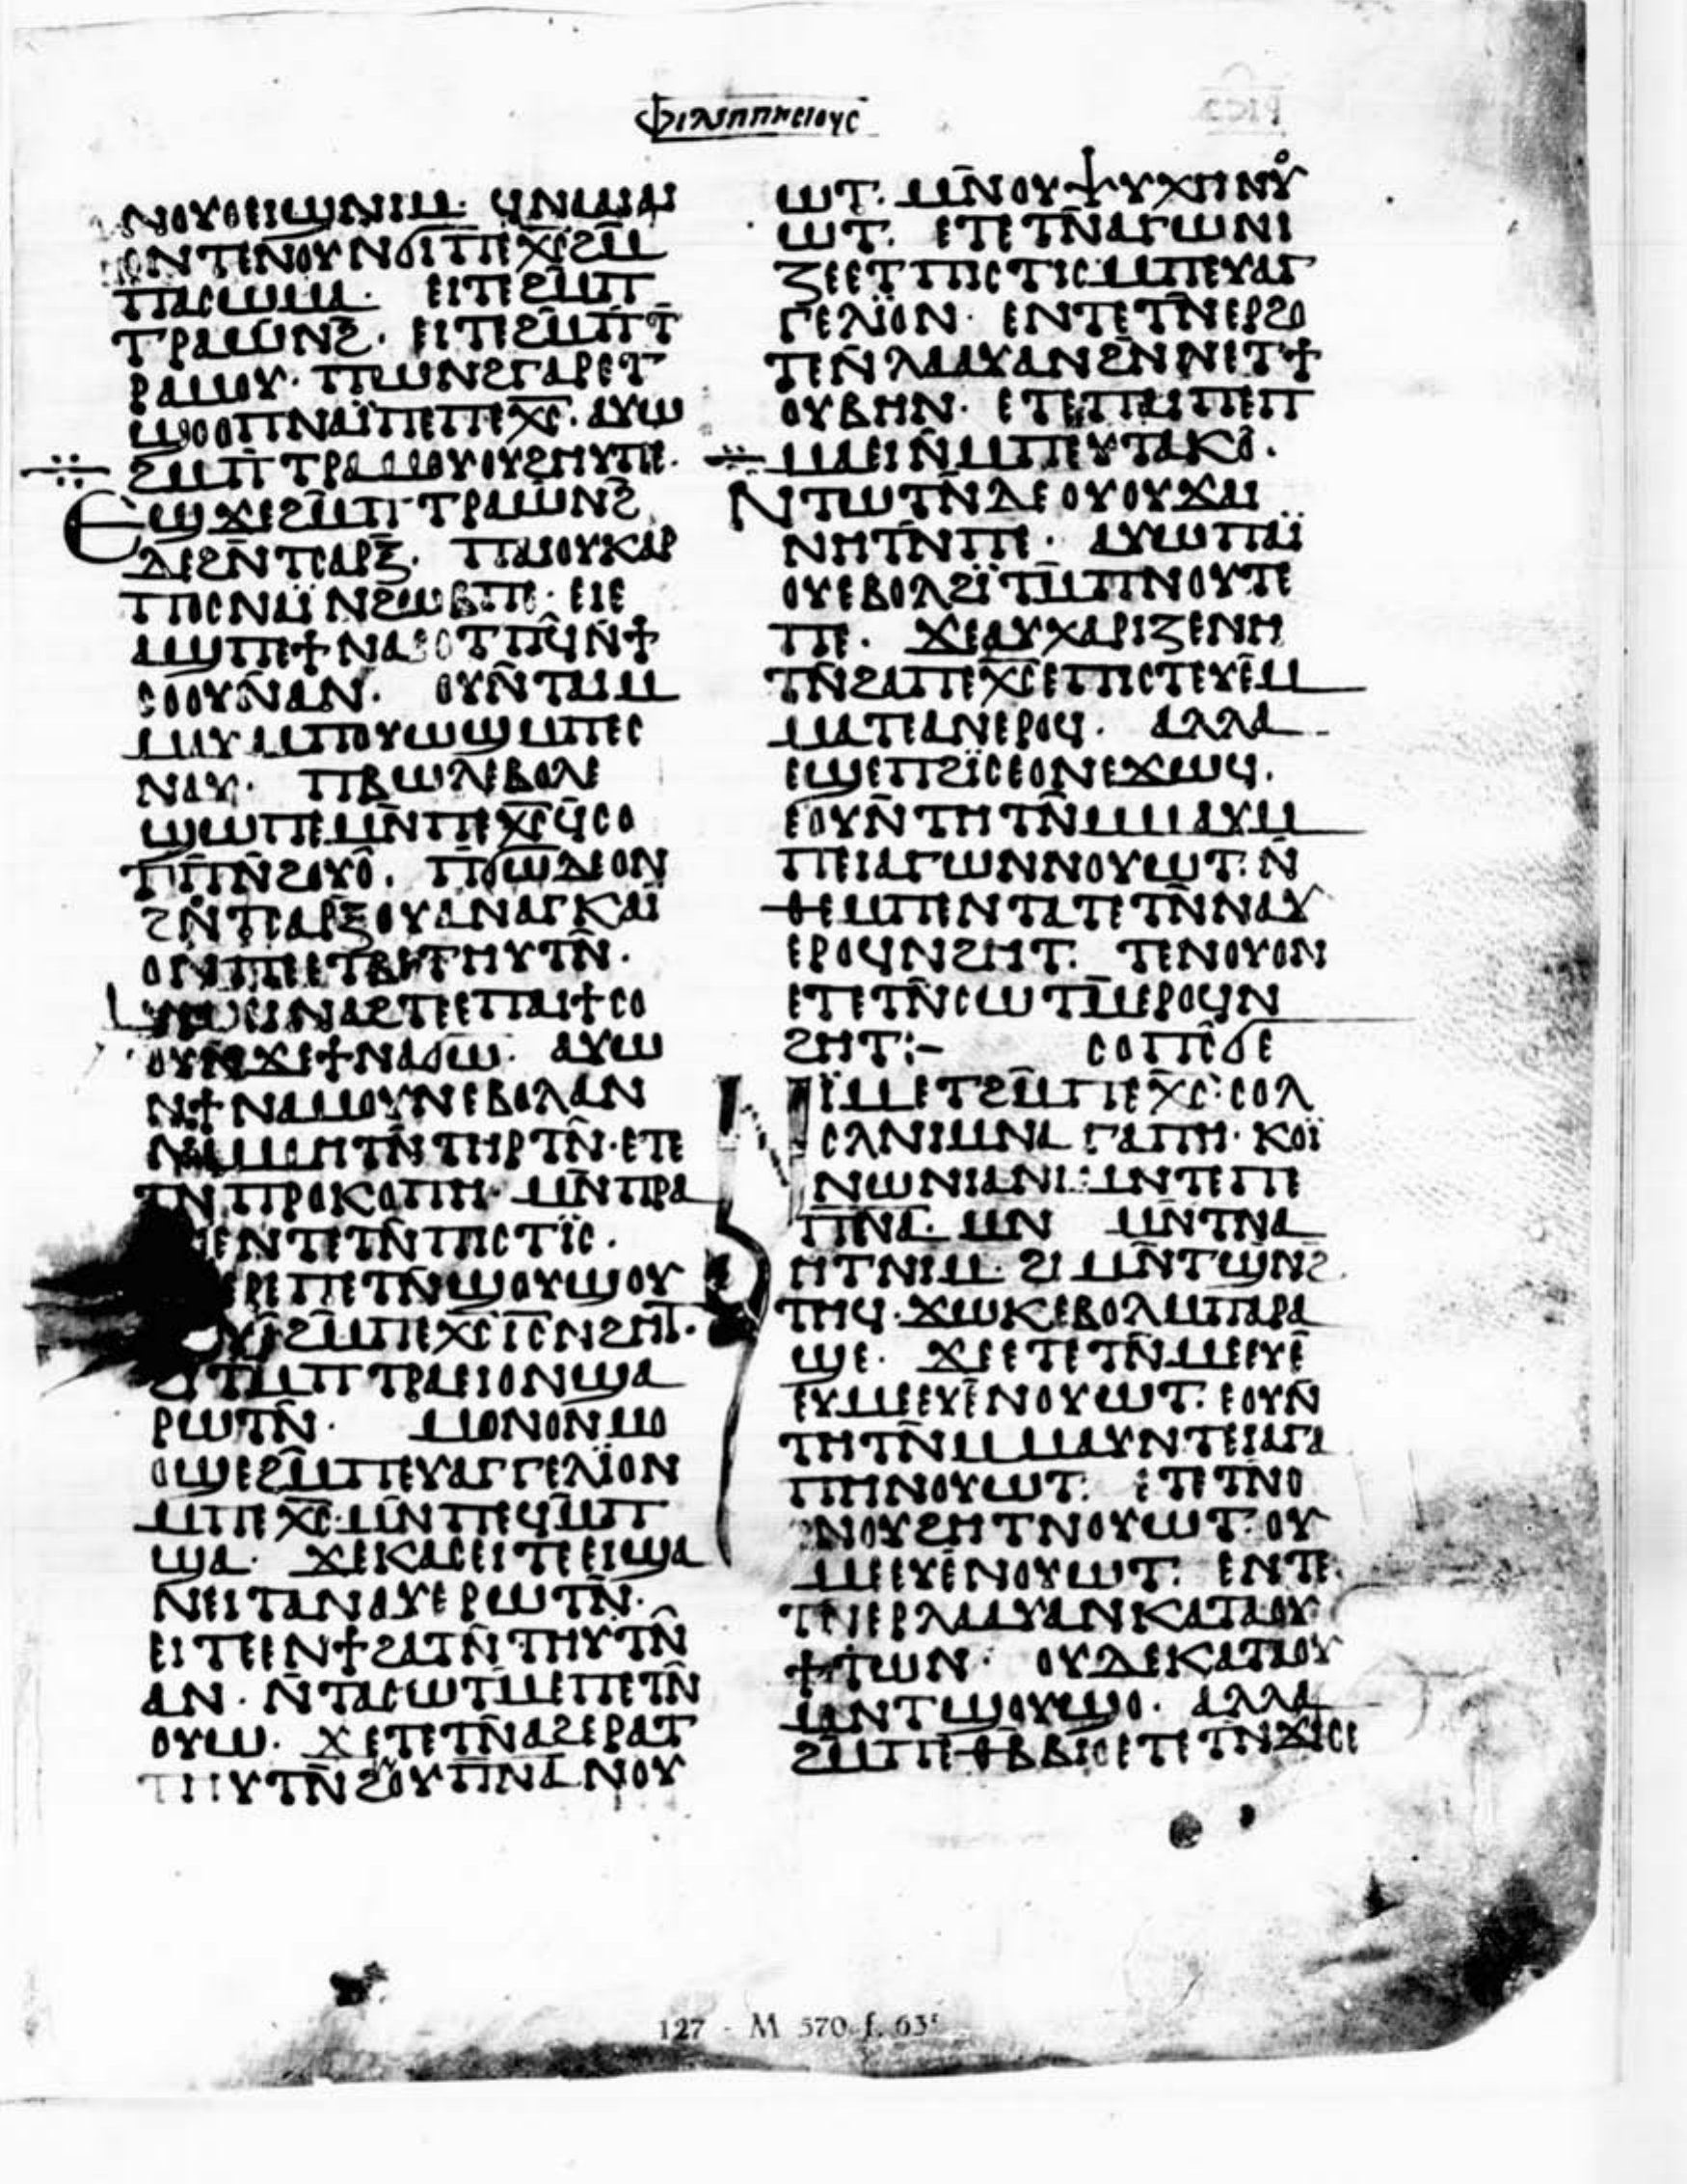 ⲫⲓⲗⲓⲡⲡⲏⲥⲓⲟⲩⲥ
ⲛⲟⲩⲟⲉⲓϣⲛⲓⲙ· ϥⲛⲁϣⲁⲓ
ⲟⲛⲧⲉⲛⲟⲩⲛϭⲓⲡⲉⲭ̅ⲥ̅ϩⲙ̅
ⲡⲁⲥⲱⲙⲁ· ⲉⲓⲧⲉϩⲙ̅ⲡ
ⲧⲣⲁⲱⲛϩ̅· ⲉⲓⲧⲉϩⲙ̅ⲡⲧ̅
ⲣⲁⲙⲟⲩ· ⲡⲱⲛϩⲅⲁⲣⲉⲧ
ϣⲟⲟⲡⲛⲁⲓ̈ⲡⲉⲡⲉⲭ̅ⲥ̅· ⲁⲩⲱ
ϩⲙ̅ⲡⲧⲣⲁⲙⲟⲩⲟⲩϩⲏⲩⲡⲉ·
ⲉϣϫⲉϩⲙ̅ⲡⲧⲣⲁⲱⲛϩ̅
ⲇⲉϩⲛ̅ⲧⲥⲁⲣⲝ̅· ⲡⲁⲓⲟⲩⲕⲁⲣ
ⲡⲟⲥⲛⲁⲓ̈ⲛϩⲱⲃⲡⲉ· ⲉⲓⲉ
ⲁϣⲡⲉϯⲛⲁⲥⲟⲧⲡϥ̅ⲛ̅ϯ
ⲥⲟⲟⲩⲛ̅ⲁⲛ· ⲟⲩⲛ̅ⲧⲁⲓⲙ
ⲙⲁⲩⲙⲡⲟⲩⲱϣⲙⲡⲉⲥ
ⲛⲁⲩ· ⲡⲃⲱⲗⲉⲃⲟⲗⲉ
ϣⲱⲡⲉⲙⲛ̅ⲡⲉⲭ̅ⲥ̅ϥ̅ⲥⲟ
ⲧⲡ̅ⲛ̅ϩⲟⲩⲟ̂· ⲡ̅ϭⲱⲇⲉⲟⲛ
ϩⲛ̅ⲧⲥⲁⲣⲝⲟⲩⲁⲛⲁⲅⲕⲁⲓ̈
ⲟⲛⲡⲉⲉⲧⲃⲉⲧⲏⲩⲧⲛ̅·
ⲟⲩⲛ̅ϫⲉϯⲛⲁϭⲱ· ⲁⲩⲱ
ⲛϯⲛⲁⲙⲟⲩⲛⲉⲃⲟⲗⲁⲛ
ⲛⲙⲙⲏⲧⲛ̅ⲧⲏⲣⲧⲛ̅·ⲉⲧⲉ
ⲧⲛ̅ⲡⲣⲟⲕⲟⲡⲏ· ⲙⲛ̅ⲡⲣⲁ
ϣⲉⲛⲧⲉⲧⲛ̅ⲡⲓⲥⲧⲓ̈ⲥ·
ⲉⲣⲉⲡⲉⲧⲛ̅ϣⲟⲩϣⲟⲩ
ϩⲙ̅ⲡⲉⲭ̅ⲥ̅ⲓ̅ⲥ̅ⲛϩⲏⲧ·
ϩⲓⲧⲙ̅ⲡⲧⲣⲁⲉⲓⲟⲛϣⲁ
ⲣⲱⲧⲛ̅· ⲙⲟⲛⲟⲛⲙⲟ
ⲟϣⲉϩⲙ̅ⲡⲉⲩⲁⲅⲅⲉⲗⲓ̈ⲟⲛ
ⲙⲡⲉⲭ̅ⲥ̅·ⲙⲛ̅ⲡⲉϥⲙ̅ⲡ
ϣⲁ· ϫⲉⲕⲁⲥⲉⲓⲧⲉⲉⲓϣⲁ
ⲛⲉⲓⲧⲁⲛⲁⲩⲉⲣⲱⲧⲛ̅·
ⲉⲓⲧⲉⲉⲛϯϩⲁⲧⲛ̅ⲧⲏⲩⲧⲛ̅
ⲁⲛ· ⲛ̅ⲧⲁⲥⲱⲧⲙⲉⲡⲉⲧⲛ̅
ⲟⲩⲱ· ϫⲉⲧⲉⲧⲛ̅ⲁϩⲉⲣⲁⲧ
ⲧⲏⲩⲧⲛ̅ϩⲛⲟⲩⲡ̅ⲛ̅ⲁ̅ⲛⲟⲩ
ⲱⲧ· ⲙⲛ̅ⲟⲩⲯⲩⲭⲏⲛⲟⲩ
ⲱⲧ· ⲉⲧⲉⲧⲛ̅ⲁⲅⲱⲛⲓ
ⲍⲉⲉⲧⲡⲓⲥⲧⲓⲥⲙⲡⲉⲩⲁⲅ
ⲅⲉⲗⲓ̈ⲟⲛ· ⲉⲛⲧⲉⲧⲛ̅ⲉⲣϩⲟ
ⲧⲉⲛ̅ⲗⲁⲁⲩⲁⲛϩⲛ̅ⲛⲉⲧϯ
ⲟⲩⲃⲏⲛ· ⲉⲧⲉⲡⲁⲓⲡⲉⲡ
ⲙⲁⲉⲓⲛ̅ⲙⲡⲉⲩⲧⲁⲕⲟ̂·
ⲛⲧⲱⲧⲛ̅ⲇⲉⲟⲩⲟⲩϫⲁⲓ
ⲛⲏⲧⲛ̅ⲡⲉ· ⲁⲩⲱⲡⲁⲓ̈
ⲟⲩⲉⲃⲟⲗϩⲓ̈ⲧⲙ̅ⲡⲛⲟⲩⲧⲉ
ⲡⲉ· ϫⲉⲁⲩⲭⲁⲣⲓⲍⲉⲛⲏ
ⲧⲛ̅ϩⲁⲡⲉⲭ̅ⲥ̅ⲉⲡⲓⲥⲧⲉⲩⲉ̅ⲙ
ⲙⲁⲧⲉⲁⲛⲉⲣⲟϥ· ⲁⲗⲗⲁ
ⲉϣⲉⲡϩⲓ̈ⲥⲉⲟⲛⲉϫⲱϥ·
ⲉⲟⲩⲛ̅ⲧⲏⲧⲛ̅ⲙⲙⲁⲩⲙ
ⲡⲉⲓⲁⲅⲱⲛⲛⲟⲩⲱⲧ·ⲛ̅
ⲑⲉⲙⲡⲉⲛⲧⲁⲧⲉⲧⲛ̅ⲛⲁⲩ
ⲉⲣⲟϥⲛϩⲏⲧ· ⲧⲉⲛⲟⲩⲟⲛ
ⲉⲧⲉⲧⲛ̅ⲥⲱⲧⲙ̅ⲉⲣⲟϥⲛ
ϩⲏⲧ:– ⲥⲟⲡⲥ̂ϭⲉ
ⲛⲓ̈ⲙⲉⲧϩⲙ̅ⲡⲉⲭ̅ⲥ̅·ⲥⲟⲗ
ⲥⲗⲛⲓⲙⲛⲁⲅⲁⲡⲏ· ⲕⲟⲓ̈
ⲛⲱⲛⲓⲁⲛⲓⲙⲛⲧⲉⲡⲉ
ⲡ̅ⲛ̅ⲁ̅· ⲙⲛ ⲙⲛ̅ⲧⲛⲁ
ⲏⲧⲛⲓⲙ· ϩⲓ ⲙⲛ̅ⲧϣⲛ̅ϩ
ⲧⲏϥ·ϫⲱⲕⲉⲃⲟⲗⲙⲡⲁⲣⲁ
ϣⲉ· ϫⲉⲉⲧⲉⲧⲛ̅ⲙⲉⲉⲩⲉ̅
ⲉⲩⲙⲉⲉⲩⲉ̅ⲛⲟⲩⲱⲧ· ⲉⲟⲩⲛ̅
ⲧⲏⲧⲛ̅ⲙⲙⲁⲩⲛⲧⲉⲓⲁⲅⲁ
ⲡⲏⲛⲟⲩⲱⲧ· ⲉⲧⲉⲧⲛ̅ⲟ
ⲛⲟⲩϩⲏⲧⲛⲟⲩⲱⲧ·ⲟⲩ
ⲙⲉⲉⲩⲉ̅ⲛⲟⲩⲱⲧ· ⲉⲛⲧⲉ
ⲧⲛⲉⲣⲗⲁⲁⲩⲁⲛⲕⲁⲧⲁⲟⲩ
ϯⲧⲱⲛ· ⲟⲩⲇⲉⲕⲁⲧⲁⲟⲩ
ⲙⲛⲧϣⲟⲩϣⲟ· ⲁⲗⲗⲁ
ϩⲙⲡⲉⲑⲃⲃⲓⲟⲉⲧⲉⲧⲛϫⲓⲥⲉ
127 - M 570 f. 63ʳ